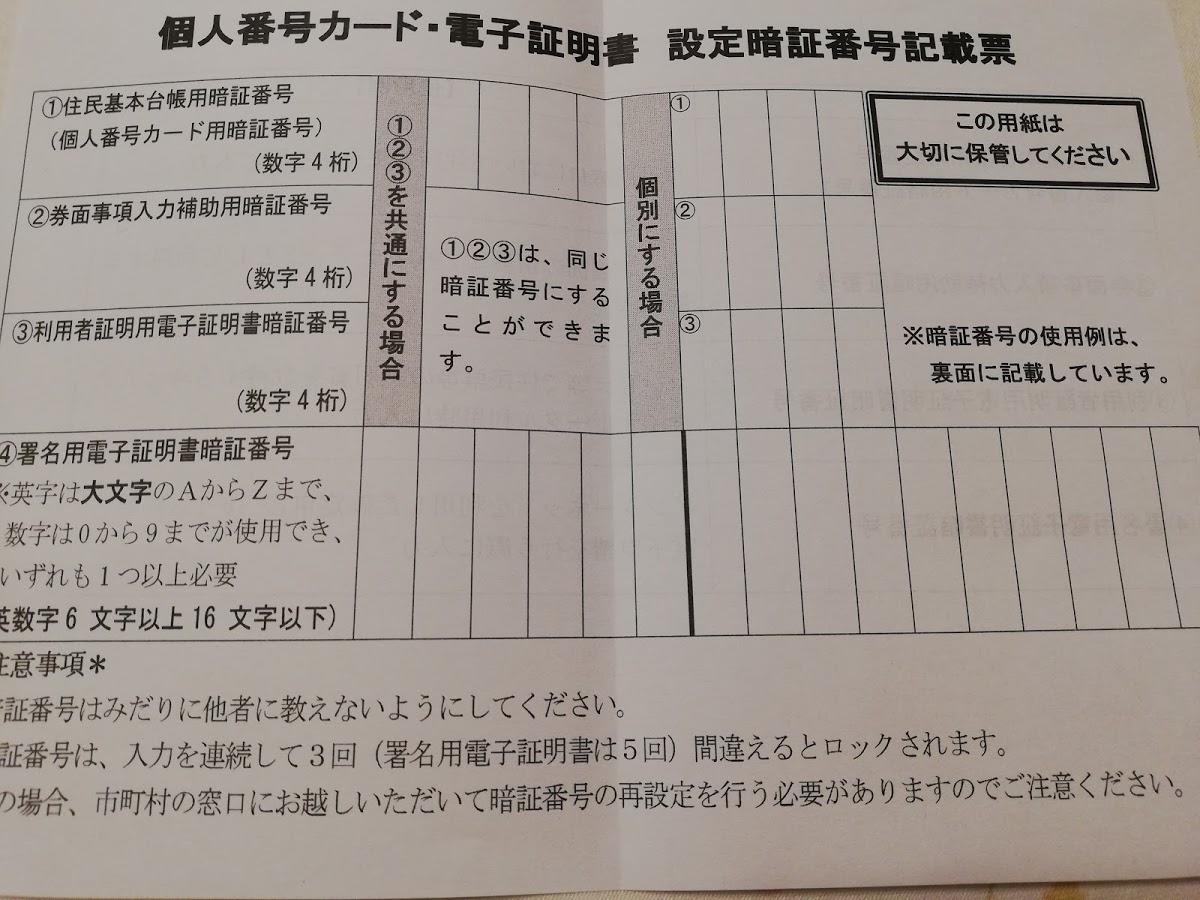 個人番号カード・電子証明書 設定暗証番号記載票
①住民基本台帳用暗証番号
(個人番号カード用暗証番号)
(数字4桁)
②券面事項入力補助用暗証番号
(数字4桁)
③利用者証明用電子証明書暗証番号
(数字4桁)
①②③を共通にする場合
①②③は、同じ
暗証番号にする
ことができま
す。
個別にする場合
①
②
③
この用紙は
大切に保管してください
※暗証番号の使用例は、
裏面に記載しています。
④署名用電子証明書暗証番号
※英字は大文字のAからZまで、
数字は0から9までが使用でき、
いずれも1つ以上必要
英数字6 文字以上16 文字以下)
注意事項*
証番号はみだりに他者に教えないようにしてください。
証番号は、入力を連続して3回(署名用電子証明書は5回)間違えるとロックされます。
の場合、市町村の窓口にお越しいただいて暗証番号の再設定を行う必要がありますのでご注意ください。